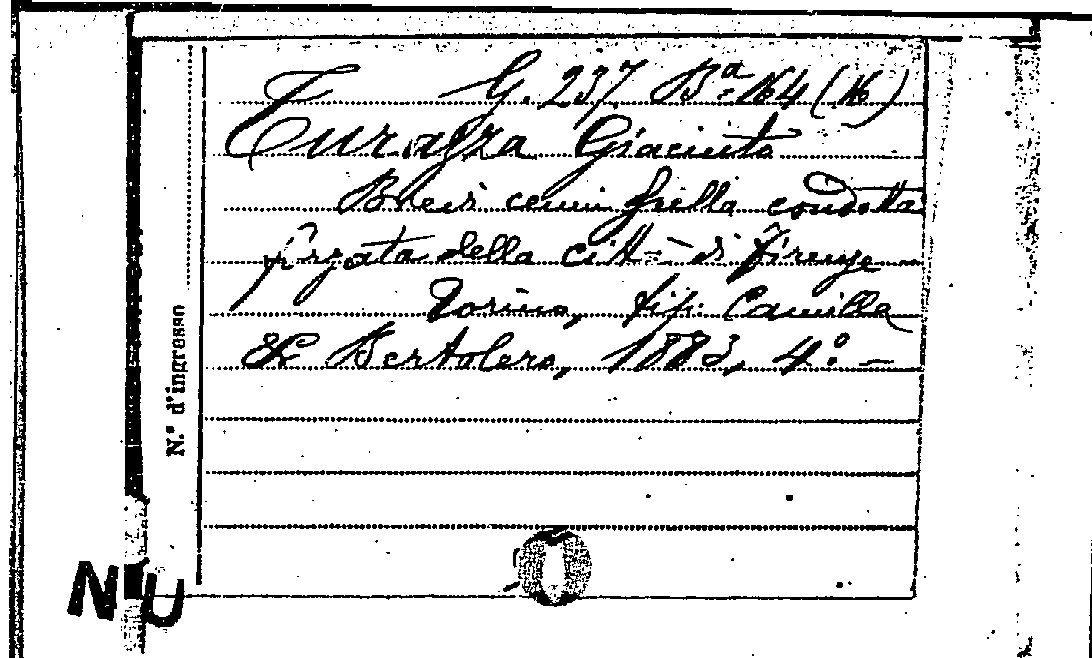 G. 237 Bª 164 (16)
Turazza Giacinto
Brevi cenni sulla condotta
forzata della città di Firenze —
Torino, tip. Camilla
& Bertolero, 1883, 4º. —
N.º d'ingresso
NU